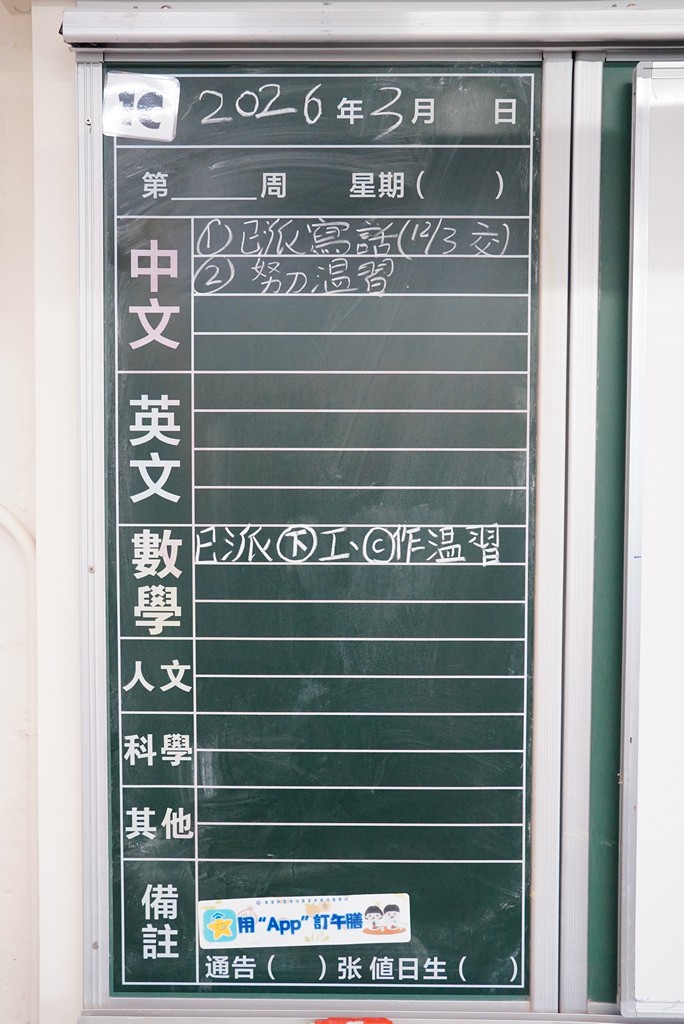 1C 2026 年 3 月 日
第______周 星期( )
中文
① 已派寫話(12/3 交)
② 努力温習.
英文
數學
已派㊦工、Ⓒ作温習
人文
科學
其他
備註
用“App”訂午膳
通告( )张 值日生( )